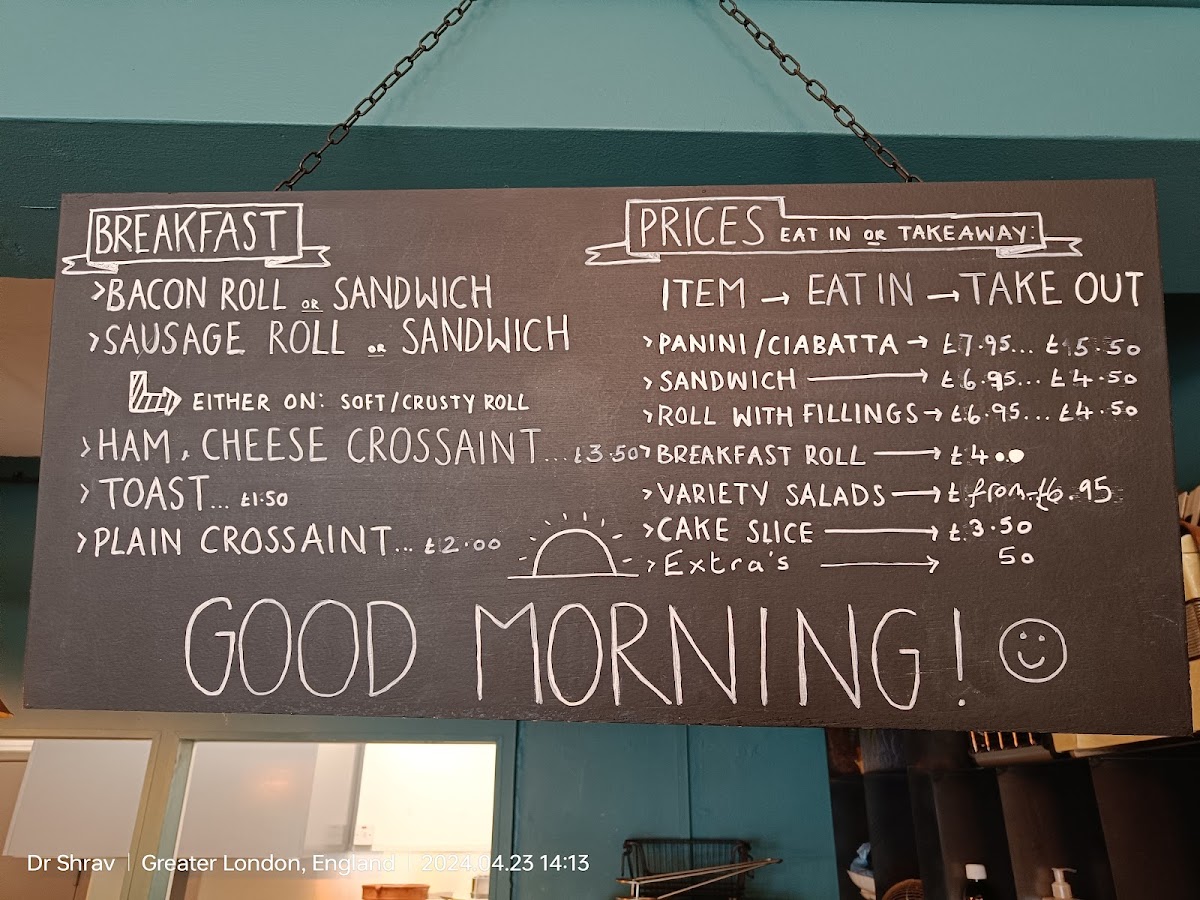 BREAKFAST
>BACON ROLL OR SANDWICH
>SAUSAGE ROLL OR SANDWICH
EITHER ON: SOFT/CRUSTY ROLL
>HAM, CHEESE CROSSAINT... £3.50
>TOAST... £1.50
>PLAIN CROSSAINT... £2.00
PRICES EAT IN OR TAKEAWAY:
ITEM → EAT IN → TAKE OUT
>PANINI/CIABATTA → £7.95... £5.50
>SANDWICH → £6.95... £4.50
>ROLL WITH FILLINGS → £6.95... £4.50
>BREAKFAST ROLL → £4.00
>VARIETY SALADS → £ from £6.95
>CAKE SLICE → £3.50
>Extra's → 50
GOOD MORNING!
Dr Shrav | Greater London, England | 2024.04.23 14:13